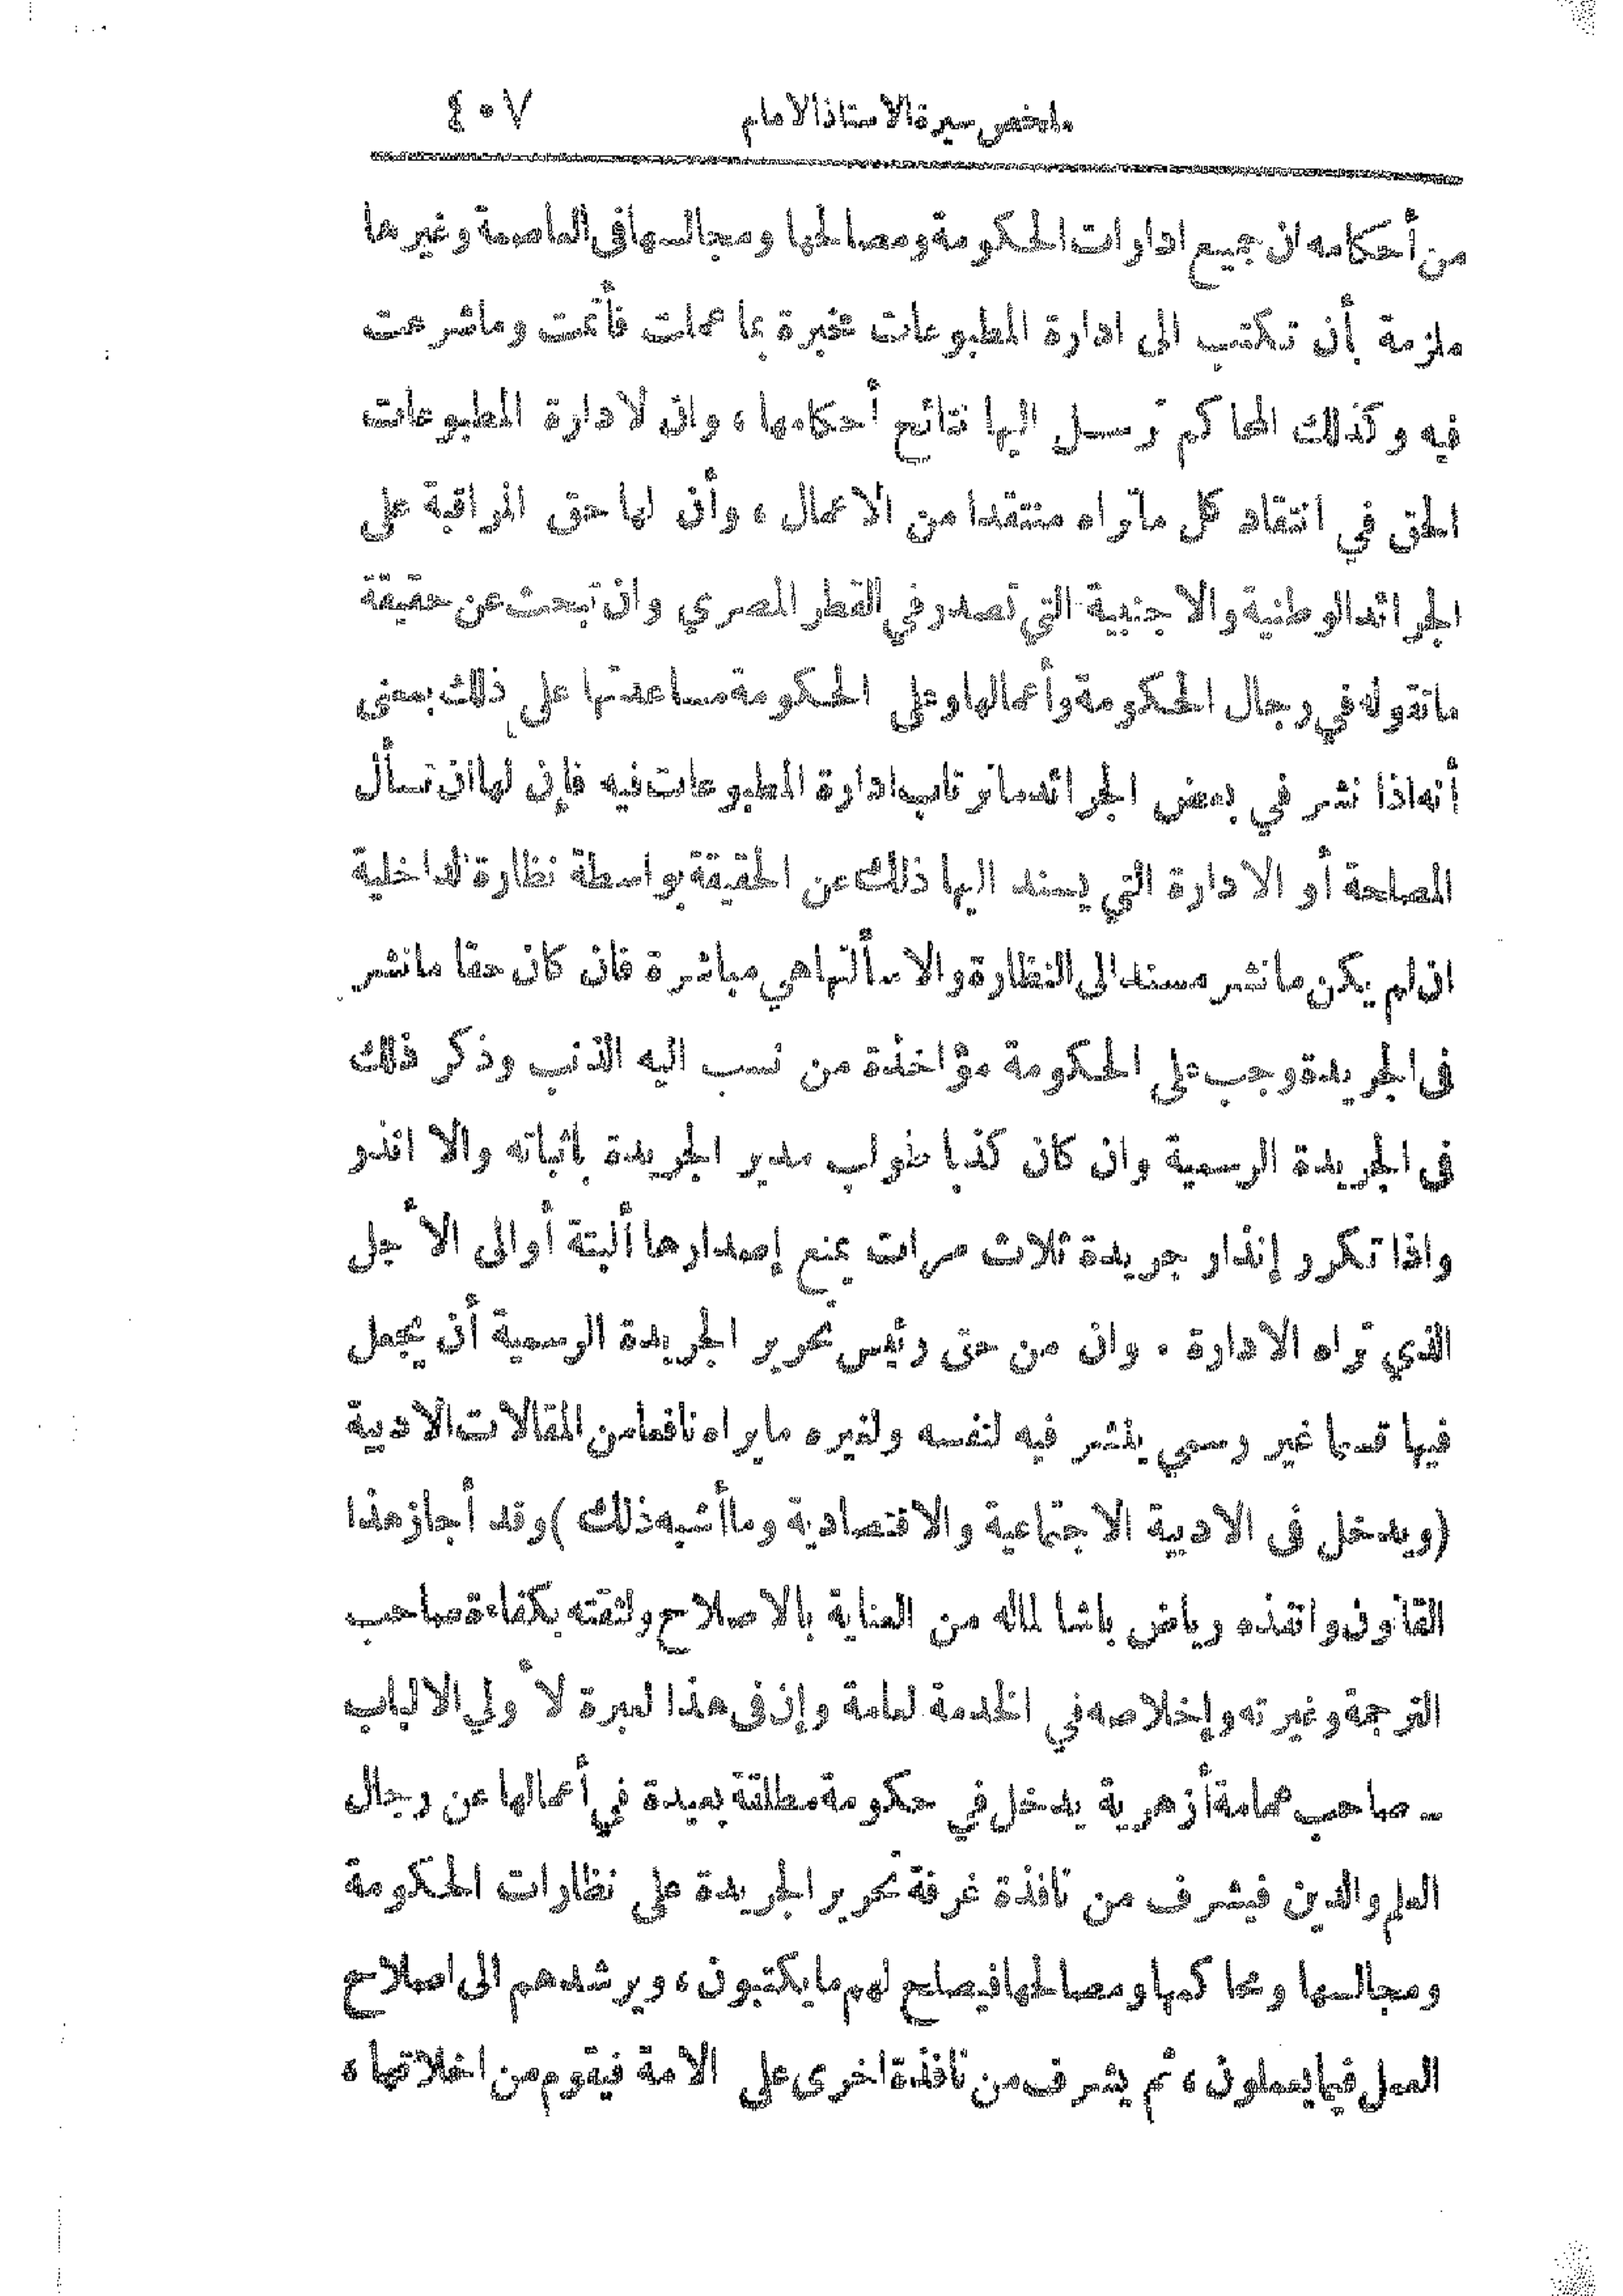 ملخص سيرة الاستاذ الامام ٤٠٧
من أحكامه ان جميع ادارات الحكومة ومصالحها ومجالسها في العاصمة وغيرها
ملزمة بأن تكتب الى ادارة المطبوعات مخبرة بما عملت فأتمت وما شرعت
فيه وكذلك المحاكم ترسل اليها نتائج أحكامها ، وان لادارة المطبوعات
الحق في انتقاد كل ما تراه منتقدا من الاعمال ، وأن لها حق المراقبة على
الجرائد الوطنية والاجنبية التي تصدر في القطر المصري وان تبحث عن حقيقة
ما تقوله في رجال الحكومة وأعمالها وعلى الحكومة مساعدتها على ذلك بمعنى
أنه اذا نشر في بعض الجرائد ما ترتاب ادارة المطبوعات فيه فإن لها ان تسأل
المصلحة أو الادارة التي يسند اليها ذلك عن الحقيقة بواسطة نظارة الداخلية
ان لم يكن ما نشر مسندا الى النظارة والا سألتها هي مباشرة فان كان حقا ما نشر
في الجريدة وجب على الحكومة مؤاخذة من نسب اليه الذنب وذكر ذلك
في الجريدة الرسمية وان كان كذبا طولب مدير الجريدة باثباته والا انذر
واذا تكرر إنذار جريدة ثلاث مرات يمنع إصدارها ألبتة أو الى الأجل
الذي تراه الادارة . وان من حق رئيس تحرير الجريدة الرسمية أن يجعل
فيها قسما غير رسمي ينشر فيه لنفسه ولغيره ما يراه نافعا من المقالات الادبية
(ويدخل في الادبية الاجتماعية والاقتصادية وما أشبه ذلك ) وقد أجاز هذا
القانون وانفذه رياض باشا لما له من العناية بالاصلاح ولثقته بكفاءة صاحب
الترجمة وغيرته وإخلاصه في الخدمة العامة وإن في هذا لعبرة لأولي الالباب
ـ صاحب عمامة أزهرية يدخل في حكومة مطلقة بعيدة في أعمالها عن رجال
العلم والدين فيشرف من نافذة غرفة تحرير الجريدة على نظارات الحكومة
ومجالسها ومحاكمها ومصالحها فيصلح لهم ما يكتبون ، ويرشدهم الى اصلاح
العمل فيما يعملون ، ثم يشرف من نافذة اخرى على الامة فيقوم من اخلاقها ،